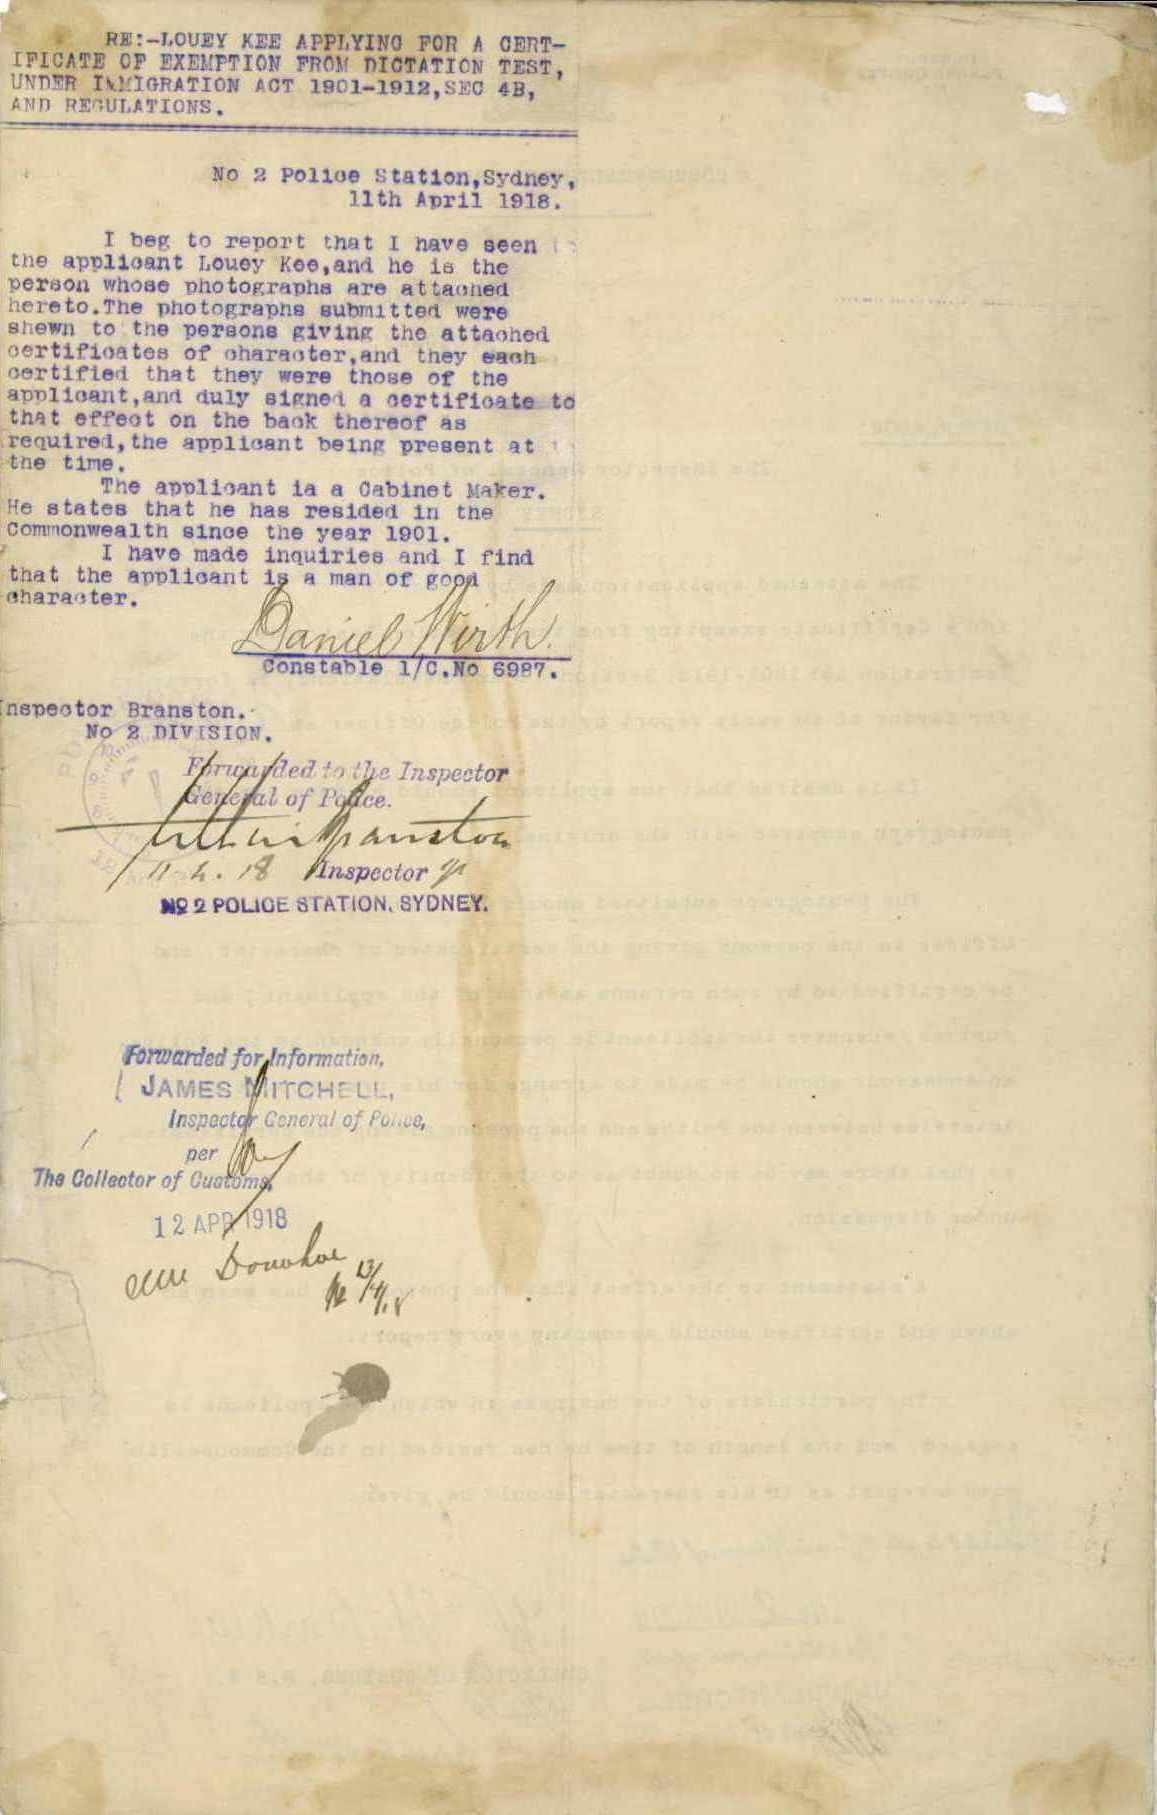 RE:-LOUEY KEE APPLYING FOR A CERT-
IFICATE OF EXEMPTION FROM DICTATION TEST,
UNDER IMMIGRATION ACT 1901-1912,SEC 4B,
AND REGULATIONS.
No 2 Police Station,Sydney,
11th April 1918.
I beg to report that I have seen
the applicant Louey Kee,and he is the
person whose photographs are attached
hereto.The photographs submitted were
shewn to the persons giving the attached
certificates of character,and they each
certified that they were those of the
applicant,and duly signed a certificate to
that effect on the back thereof as
required,the applicant being present at
the time.
The applicant ia a Cabinet Maker.
He states that he has resided in the
Commonwealth since the year 1901.
I have made inquiries and I find
that the applicant is a man of good
character.
Daniel Wirth.
Constable 1/C.No 6987.
Inspector Branston.
No 2 DIVISION.
Forwarded to the Inspector
General of Police.
Branston
11.4.18 Inspector
No 2 POLICE STATION, SYDNEY.
Forwarded for Information,
JAMES MITCHELL,
Inspector General of Police,
per
The Collector of Customs,
12 APR 1918
Donohoe
13/4/18